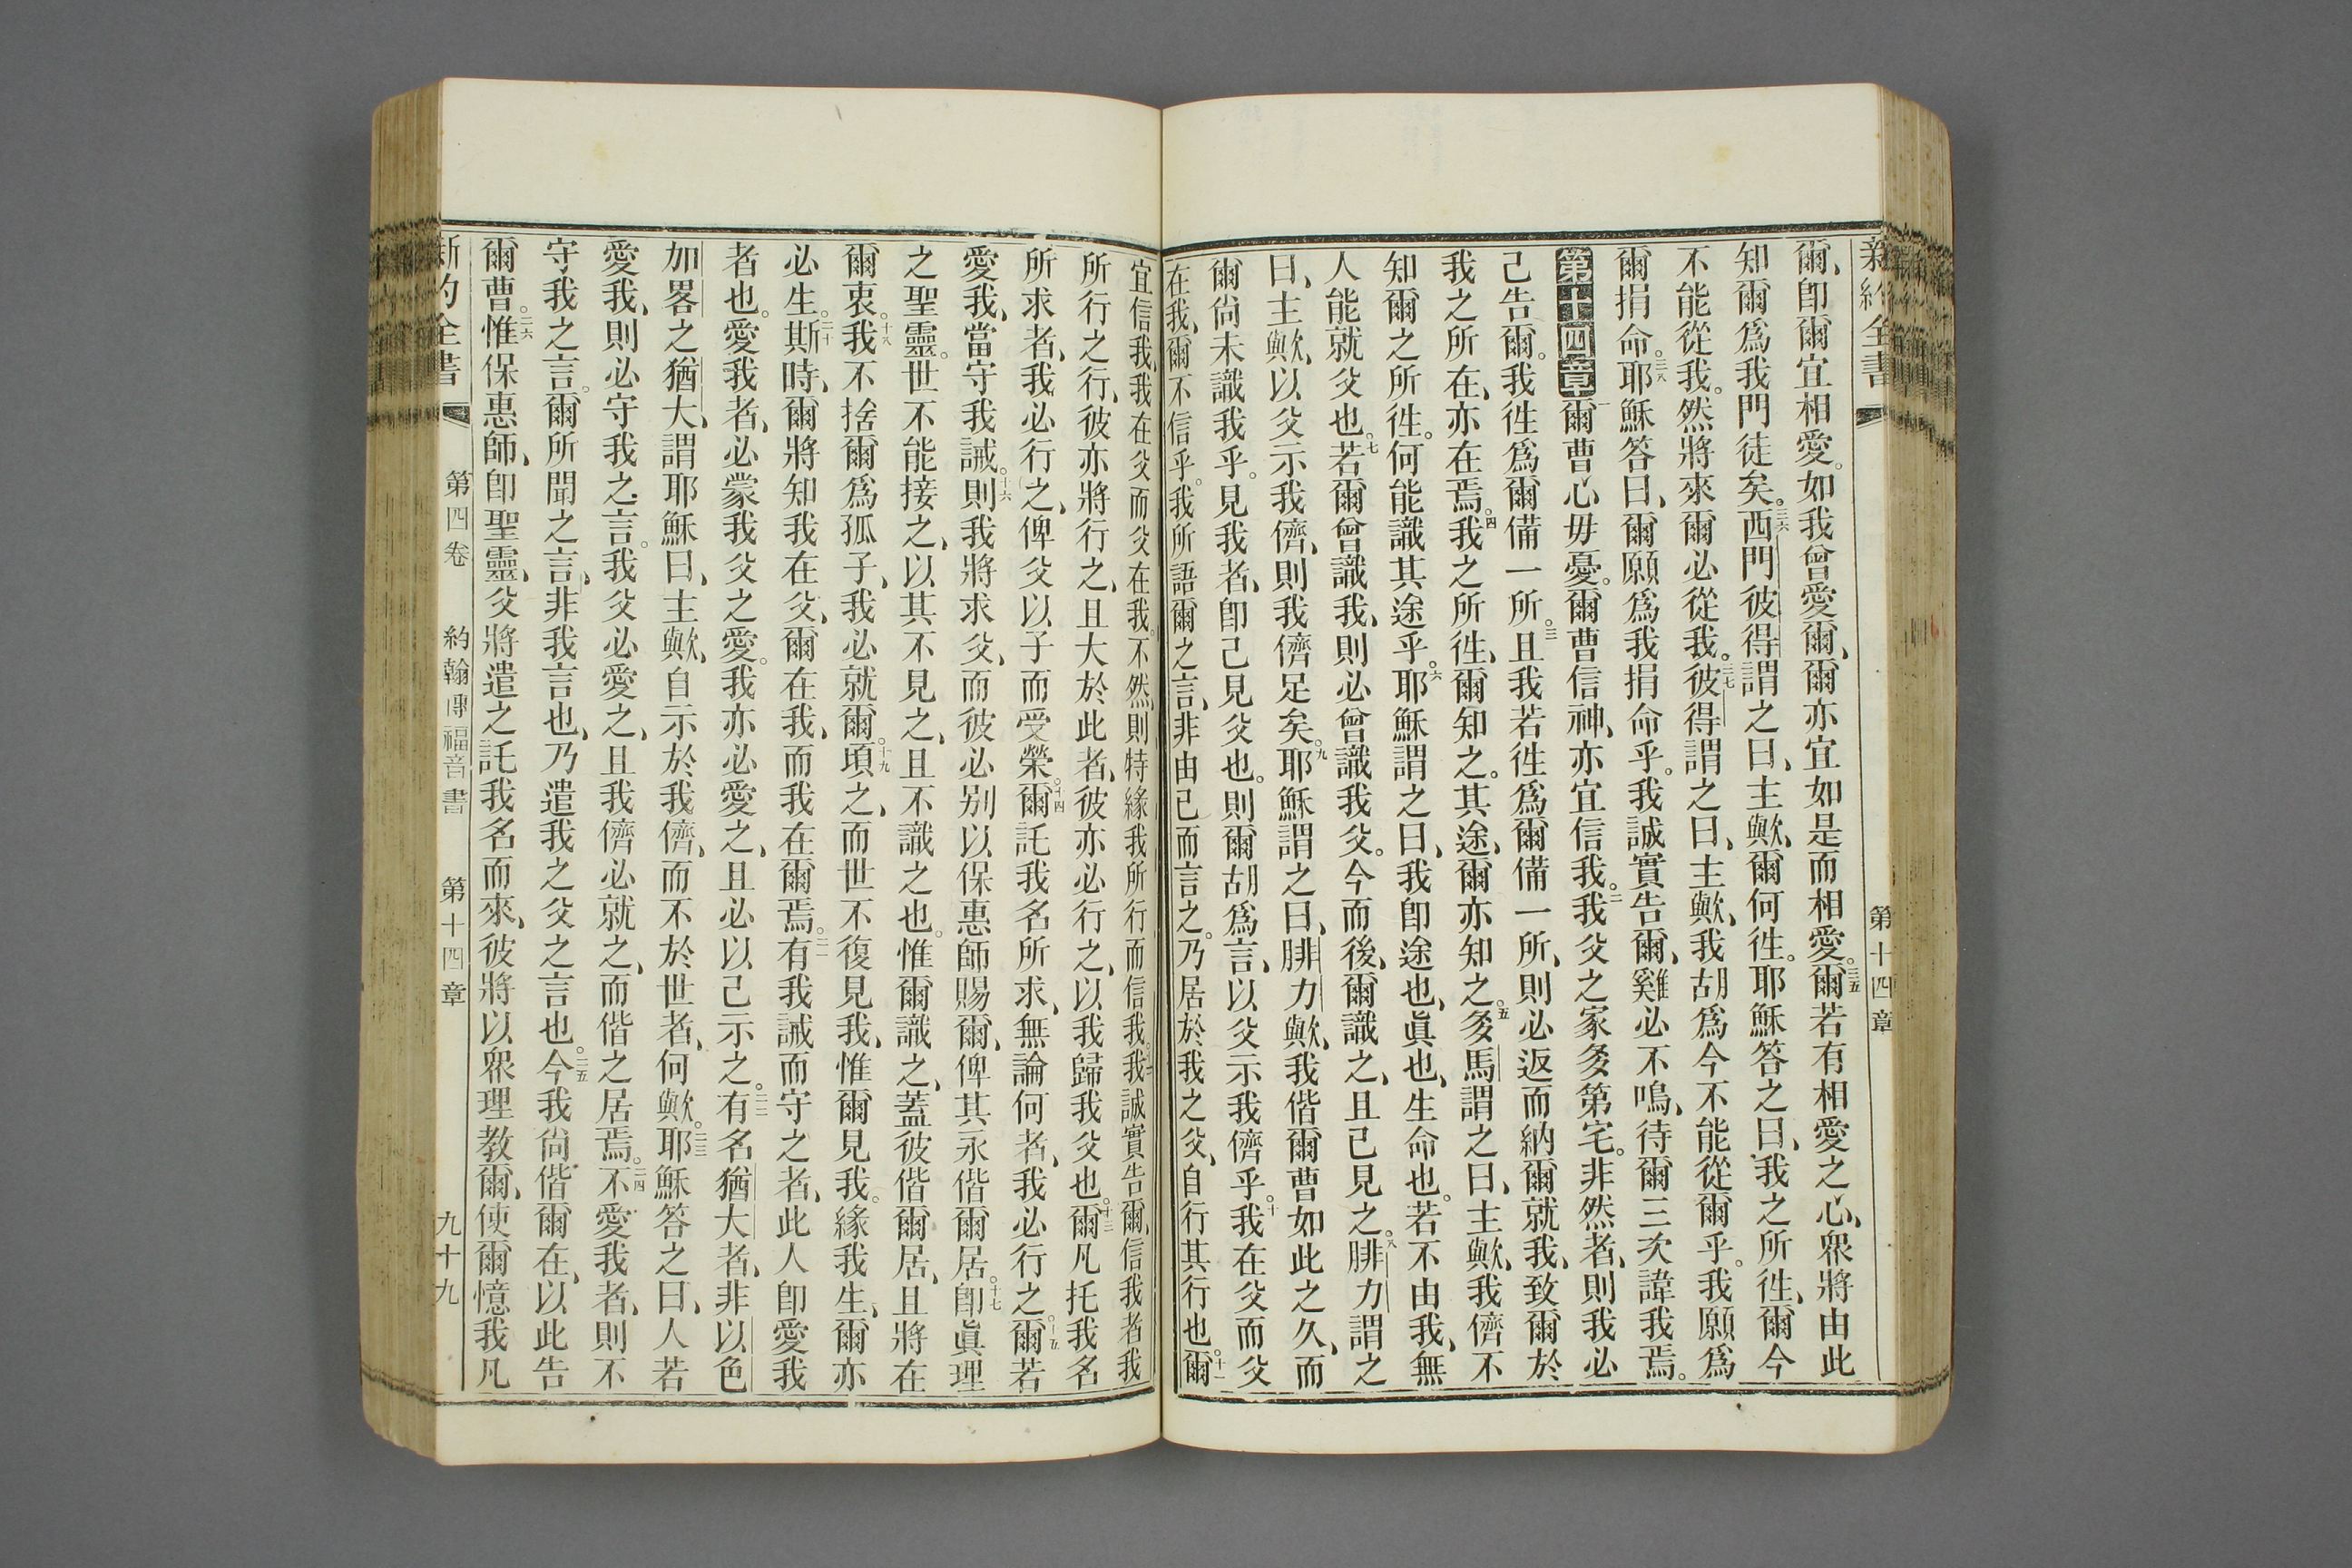 新約全書 第十四章
爾、卽爾宜相愛。如我曾愛爾、爾亦宜如是而相愛。三五爾若有相愛之心、衆將由此
知爾爲我門徒矣。三六西門彼得謂之曰、主歟、爾何徃。耶穌答之曰、我之所徃、爾今
不能從我。然將來爾必從我。三七彼得謂之曰、主歟、我胡爲今不能從爾乎。我願爲
爾捐命。三八耶穌答曰、爾願爲我捐命乎。我誠實告爾、雞必不鳴、待爾三次諱我焉。
第十四章一爾曹心毋憂。爾曹信神、亦宜信我。二我父之家多第宅。非然者、則我必
己告爾。我徃爲爾備一所。三且我若徃爲爾備一所、則必返而納爾就我、致爾於
我之所在、亦在焉。四我之所徃、爾知之。其途、爾亦知之。五多馬謂之曰、主歟、我儕不
知爾之所徃。何能識其途乎。六耶穌謂之曰、我卽途也、眞也、生命也。若不由我、無
人能就父也。七若爾曾識我、則必曾識我父。今而後、爾識之、且已見之。八腓力謂之
曰、主歟、以父示我儕、則我儕足矣。九耶穌謂之曰、腓力歟、我偕爾曹如此之久、而
爾尙未識我乎。見我者、卽己見父也。則爾胡爲言、以父示我儕乎。十我在父而父
在我、爾不信乎。我所語爾之言、非由己而言之。乃居於我之父、自行其行也。十一爾
宜信我、我在父而父在我。不然、則特緣我所行而信我。十二我誠實告爾、信我者我
所行之行、彼亦將行之、且大於此者、彼亦必行之、以我歸我父也。十三爾凡托我名
所求者、我必行之、俾父以子而受榮。十四爾託我名所求、無論何者、我必行之。十五爾若
愛我、當守我誡。十六則我將求父、而彼必別以保惠師賜爾、俾其永偕爾居。十七卽眞理
之聖靈。世不能接之、以其不見之、且不識之也。惟爾識之、蓋彼偕爾居、且將在
爾衷。十八我不捨爾爲孤子、我必就爾。十九頃之、而世不復見我、惟爾見我。緣我生、爾亦
必生。二十斯時、爾將知我在父、爾在我、而我在爾焉。二一有我誡而守之者、此人卽愛我
者也。愛我者、必蒙我父之愛。我亦必愛之、且必以己示之。二二有名猶大者、非以色
加畧之猶大、謂耶穌曰、主歟、自示於我儕、而不於世者、何歟。二三耶穌答之曰、人若
愛我、則必守我之言。我父必愛之、且我儕必就之、而偕之居焉。二四不愛我者、則不
守我之言。爾所聞之言、非我言也、乃遣我之父之言也。二五今我尙偕爾在、以此告
爾曹。二六惟保惠師、卽聖靈、父將遣之託我名而來、彼將以衆理教爾、使爾憶我凡
新約全書 第四卷 約翰傳福音書 第十四章 九十九